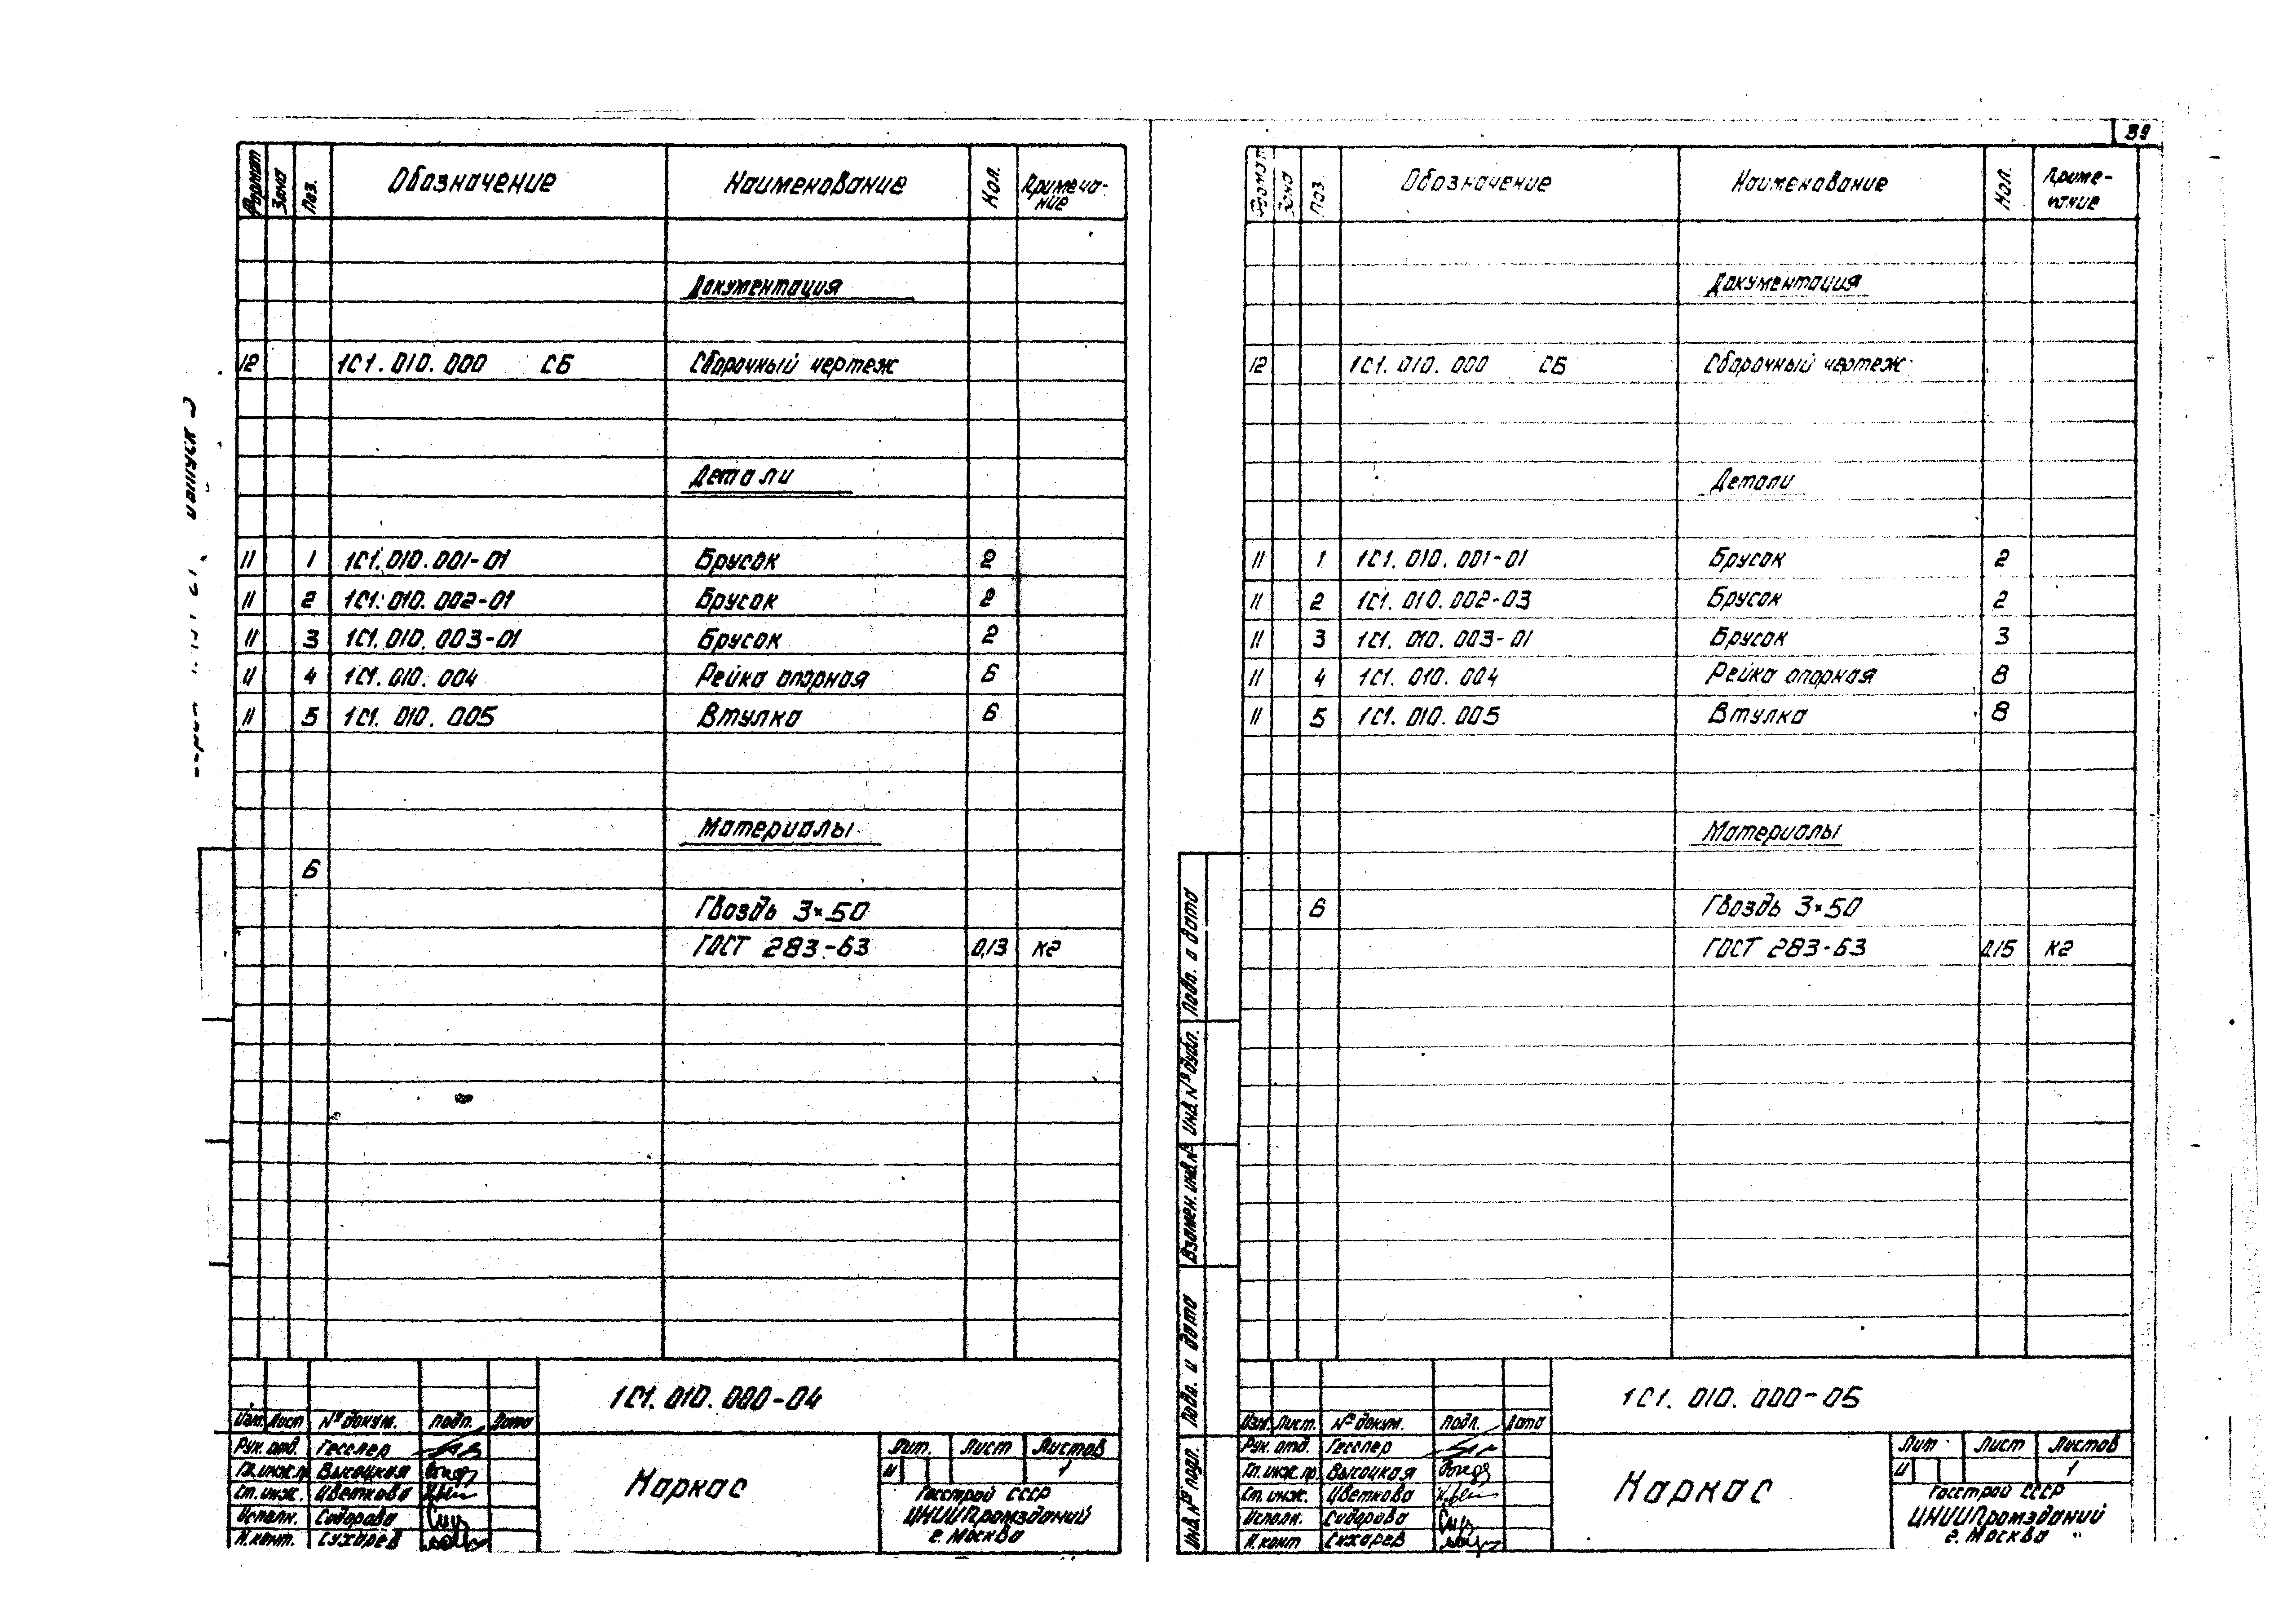 Формат Зона Поз. Обозначение Наименование Кол. Примеча-
ние
Документация
12 1С1.010.000 СБ Сборочный чертеж
Детали
11 1 1С1.010.001-01 Брусок 2
11 2 1С1.010.002-01 Брусок 2
11 3 1С1.010.003-01 Брусок 2
11 4 1С1.010.004 Рейка опорная 6
11 5 1С1.010.005 Втулка 6
Материалы
6
Гвоздь 3×50
ГОСТ 283-63 0,13 кг
1С1.010.000-04
Изм. Лист № докум. подп. Дата
Рук. отд. Гесслер
Гл. инж. пр. Высоцкая
Ст. инж. Цветкова
Исполн. Сидорова
Н. конт. Сухарев
Каркас
Лит. Лист Листов
И 1
Госстрой СССР
ЦНИИПромзданий
г. Москва
выпуск
39
Формат Зона Поз. Обозначение Наименование Кол. Приме-
чание
Документация
12 1С1.010.000 СБ Сборочный чертеж
Детали
11 1 1С1.010.001-01 Брусок 2
11 2 1С1.010.002-03 Брусок 2
11 3 1С1.010.003-01 Брусок 3
11 4 1С1.010.004 Рейка опорная 8
11 5 1С1.010.005 Втулка 8
Материалы
6 Гвоздь 3×50
ГОСТ 283-63 0,15 кг
Инв. № подл. Подп. и дата Взамен. инв. № Инв. № дубл. Подп. и дата
1С1.010.000-05
Изм. Лист. № докум. подп. Дата
Рук. отд. Гесслер
Гл. инж. пр. Высоцкая
Ст. инж. Цветкова
Исполн. Сидорова
Н. конт Сухарев
Каркас
Лит Лист Листов
И 1
Госстрой СССР
ЦНИИПромзданий
г. Москва